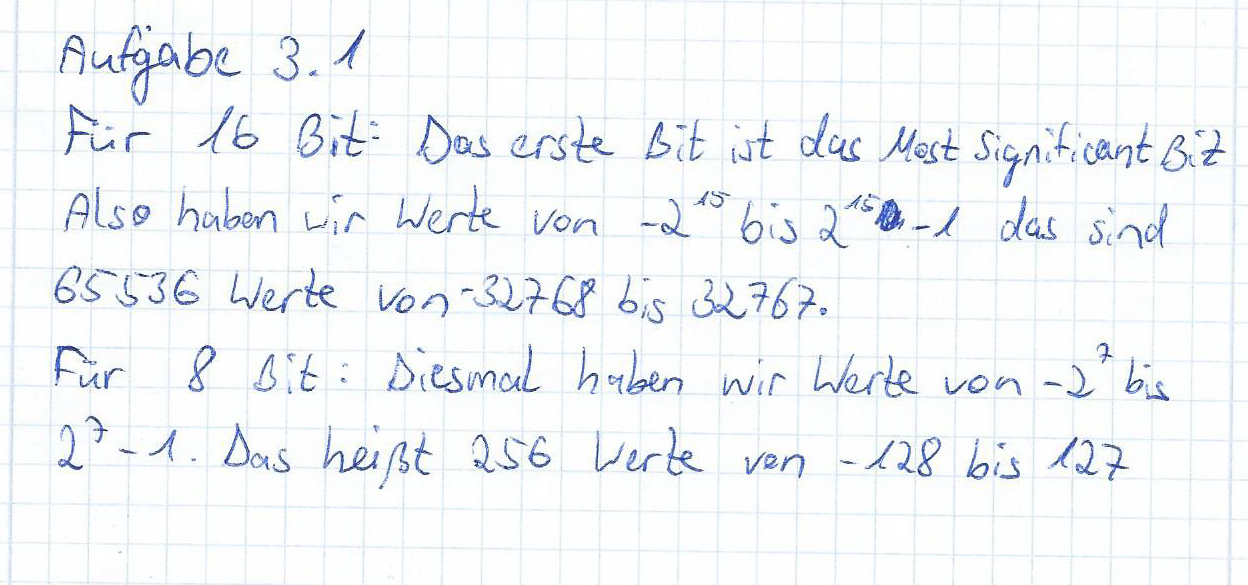 Aufgabe 3.1
Für 16 Bit: Das erste Bit ist das Most Significant Bit
Also haben wir Werte von -2^15 bis 2^15 -1 das sind
65536 Werte von -32768 bis 32767.
Für 8 Bit: Diesmal haben wir Werte von -2^7 bis
2^7 -1. Das heißt 256 Werte von -128 bis 127